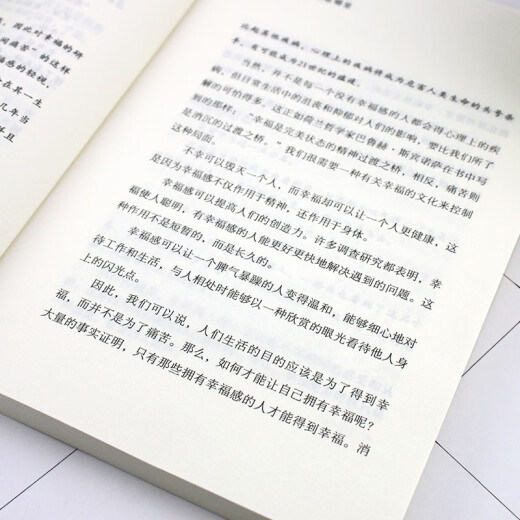 因此对幸福的研
间痛苦”的这样
福感的轻视，
会在其一生
几年当
并且
比起其他疾病，心理上的疾病将成为危害人类生命的头号杀
手，更可能成为21世纪的瘟疫。
当然，并不是每一个没有幸福感的人都会得心理上的疾
病，但日常生活中的沮丧和抑郁对人们的影响，要比我们所了
解的可怕得多。这正如荷兰哲学家巴鲁赫·斯宾诺萨在书中写
的那样：“幸福是完美状态的精神过渡之桥，相反，痛苦则
是消沉的过渡之桥。”我们很需要一种有关幸福的文化来控制
这种局面。
不幸可以毁灭一个人，而幸福却可以让一个人更健康，这
是因为幸福感不仅作用于精神，还作用于身体。
幸福感可以提高人们的创造力。许多调查研究都表明，幸
福使人聪明，有幸福感的人能更好更快地解决遇到的问题。这
种作用不是短暂的，而是长久的。
幸福感可以让一个脾气暴躁的人变得温和，能够细心地对
待工作和生活，与人相处时能够以一种欣赏的眼光看待他人身
上的闪光点。
因此，我们可以说，人们生活的目的应该是为了得到幸
福，而并不是为了痛苦。那么，如何才能让自己拥有幸福呢？
大量的事实证明，只有那些拥有幸福感的人才能得到幸福。消